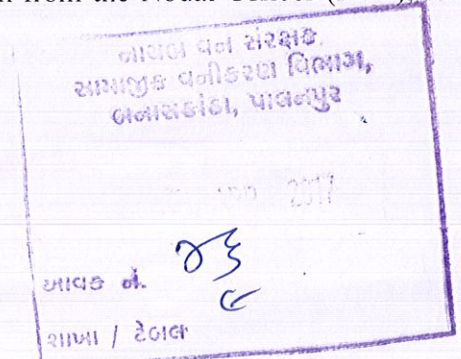 from the Nodal
નાયબ વન સંરક્ષક
સામાજીક વનીકરણ વિભાગ,
બનાસકાંઠા, પાલનપુર
2017
આવક નં.
શાખા / ટેબલ